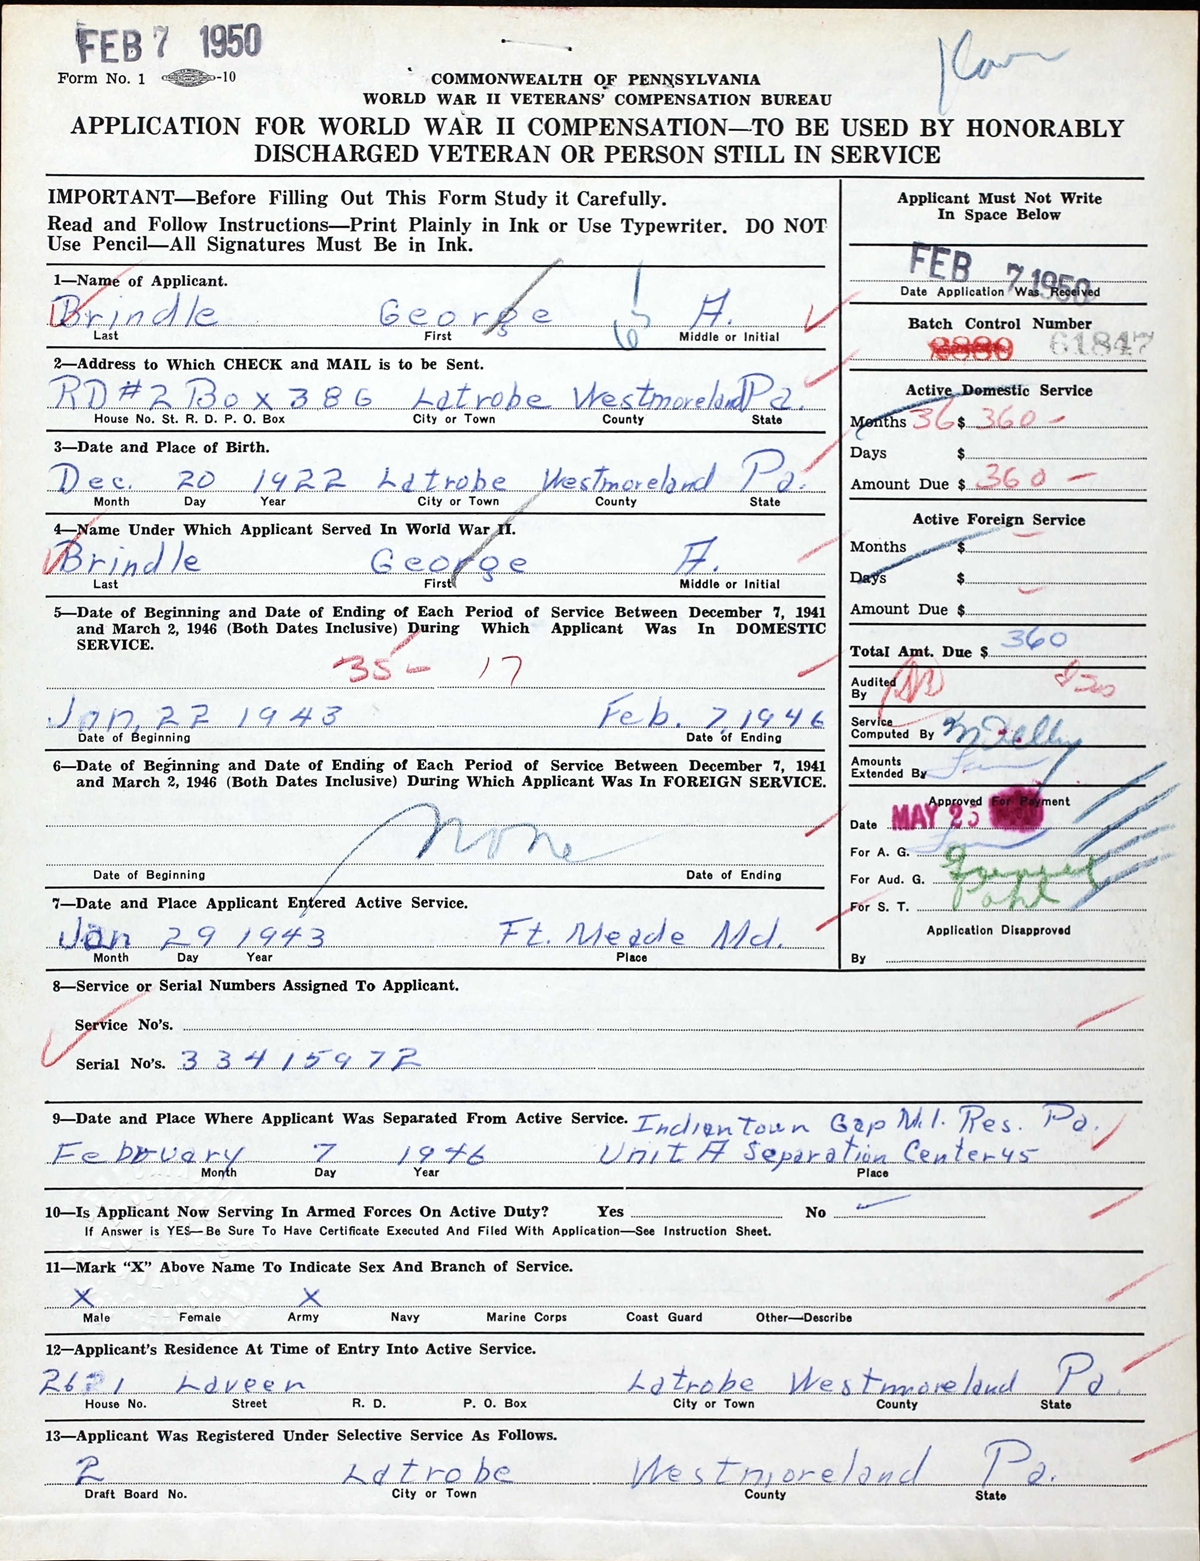 FEB 7 1950
Form No. 1 -10
COMMONWEALTH OF PENNSYLVANIA
WORLD WAR II VETERANS' COMPENSATION BUREAU
APPLICATION FOR WORLD WAR II COMPENSATION—TO BE USED BY HONORABLY
DISCHARGED VETERAN OR PERSON STILL IN SERVICE
IMPORTANT—Before Filling Out This Form Study it Carefully.
Read and Follow Instructions—Print Plainly in Ink or Use Typewriter. DO NOT
Use Pencil—All Signatures Must Be in Ink.
1—Name of Applicant.
Brindle George A.
Last First Middle or Initial
2—Address to Which CHECK and MAIL is to be Sent.
RD#2 Box 386 Latrobe Westmoreland Pa.
House No. St. R. D. P. O. Box City or Town County State
3—Date and Place of Birth.
Dec. 20 1922 Latrobe Westmoreland Pa.
Month Day Year City or Town County State
4—Name Under Which Applicant Served In World War II.
Brindle George A.
Last First Middle or Initial
5—Date of Beginning and Date of Ending of Each Period of Service Between December 7, 1941
and March 2, 1946 (Both Dates Inclusive) During Which Applicant Was In DOMESTIC
SERVICE.
35 - 17
Jan, 22 1943 Feb. 7, 1946
Date of Beginning Date of Ending
6—Date of Beginning and Date of Ending of Each Period of Service Between December 7, 1941
and March 2, 1946 (Both Dates Inclusive) During Which Applicant Was In FOREIGN SERVICE.
none
Date of Beginning Date of Ending
7—Date and Place Applicant Entered Active Service.
Jan 29 1943 Ft. Meade Md.
Month Day Year Place
Applicant Must Not Write
In Space Below
FEB 7 1950
Date Application Was Received
Batch Control Number
61847
Active Domestic Service
Months 36 $ 360 -
Days $
Amount Due $ 360 -
Active Foreign Service
Months $
Days $
Amount Due $
Total Amt. Due $ 360
Audited
By
Service
Computed By
Amounts
Extended By
Approved For Payment
Date MAY 25
For A. G.
For Aud. G.
For S. T.
Application Disapproved
By
8—Service or Serial Numbers Assigned To Applicant.
Service No's.
Serial No's. 33415972
9—Date and Place Where Applicant Was Separated From Active Service. Indiantown Gap Mil. Res. Pa.
February 7 1946 Unit A Separation Center 45
Month Day Year Place
10—Is Applicant Now Serving In Armed Forces On Active Duty? Yes No
If Answer is YES—Be Sure To Have Certificate Executed And Filed With Application—See Instruction Sheet.
11—Mark "X" Above Name To Indicate Sex And Branch of Service.
X X
Male Female Army Navy Marine Corps Coast Guard Other—Describe
12—Applicant's Residence At Time of Entry Into Active Service.
Laveen Latrobe Westmoreland Pa.
House No. Street R. D. P. O. Box City or Town County State
13—Applicant Was Registered Under Selective Service As Follows.
2 Latrobe Westmoreland Pa.
Draft Board No. City or Town County State